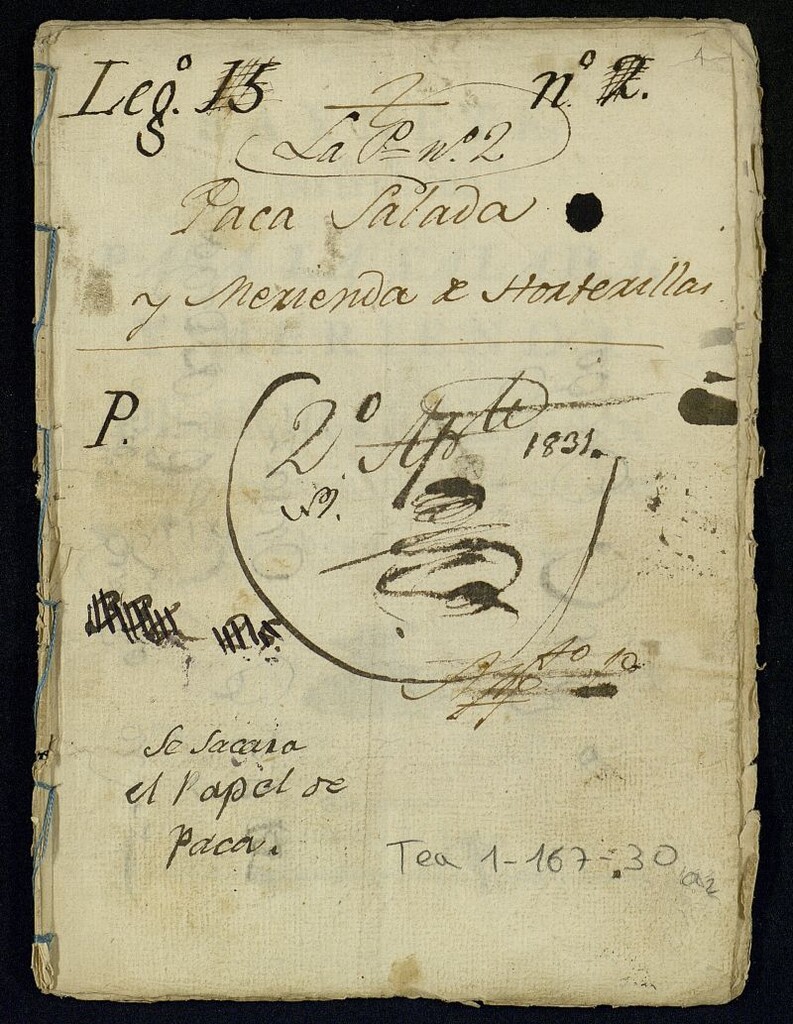 Legº. 15 nº 2.
2
La Pª nº. 2
Paca Salada
y Merienda de Horterillas
P.
2º Apte
1831.
Se sacara
el Papel de
Paca.
Tea 1-167-30
a2